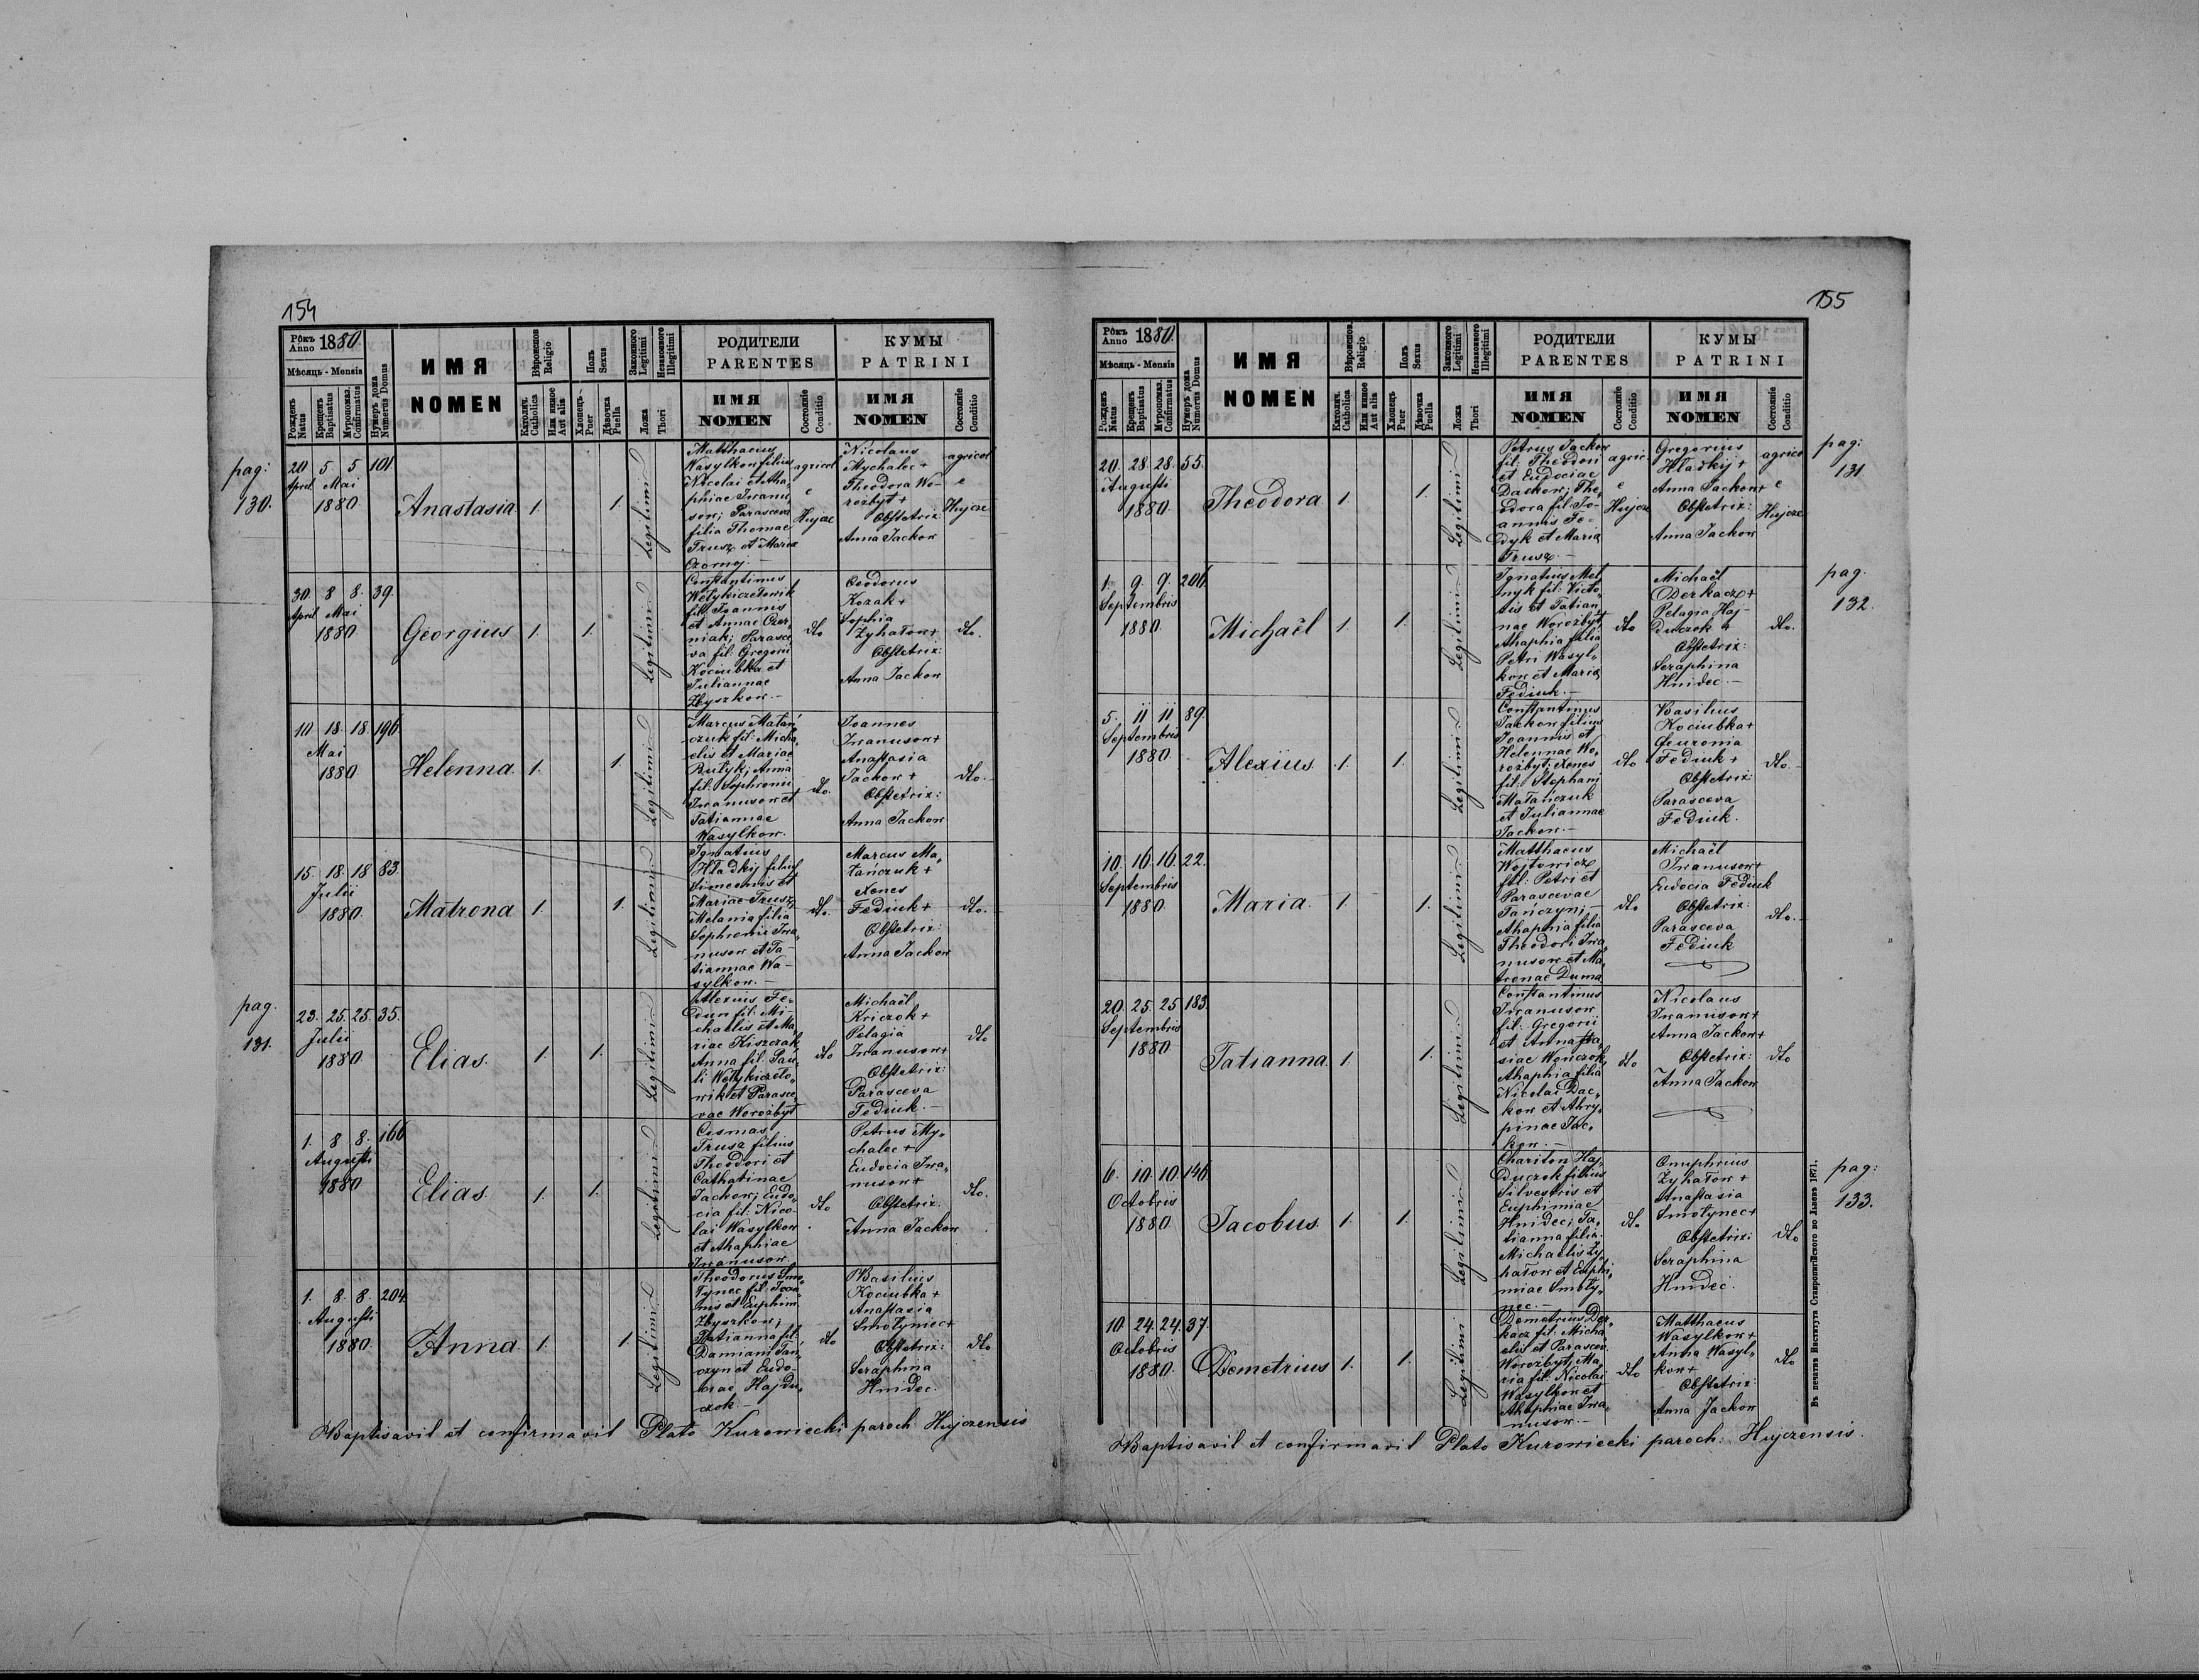 154
Рôкъ Anno 1880.
Мѣсяць - Mensis
Рожденъ Natus
Крещенъ Baptisatus
Мѵропомаз. Confirmatus
Нумеръ дома Numerus Domus
ИМЯ
NOMEN
Вѣроисповѣд Religio
Католич. Catholica
Или иное Aut alia
Полъ Sexus
Хлопець Puer
Дѣвочка Puella
Законного Legitimi
Незаконного Illegitimi
Ложа Thori
РОДИТЕЛИ
PARENTES
ИМЯ
NOMEN
Состояніе Conditio
КУМЫ
PATRINI
ИМЯ
NOMEN
Состояніе Conditio
pag: 130.
20 5 5 101.
April Mai
1880
Anastasia 1. 1. Legitimi
Matthaeus
Wasylkow filius
Nicolai et Aha,
phiae Iwanu
sow; Parasceva
filia Thomae
Trusz et Maria
Czornyj. —
agricolae Hujcze
Nicolaus
Mychalec +
Theodora Wo-
rozbyt +
Obstetrix:
Anna Jackow
agricolae Hujcze
30. 8 8. 39.
April Mai
1880
Georgius 1. 1. Legitimi
Constantinus
Wełykiczełowik
fil: Joannis
et Annae Czer,
niak; Parasce
va fil: Gregorii
Kociubka et
Juliannae
Zbyszkow. —
dto
Teodorus
Kozak +
Sophia
Zyhałow +
Obstetrix:
Anna Jackow
dto.
10 18. 18. 196
Mai
1880
Helenna 1. 1. Legitimi
Marcus Matań
czuk fil: Micha,
elis et Mariae
Rutyk; Anna
fil: Sophronii
Iwanusow et
Tatiannae
Wasylkow.
dto.
Joannes
Iwanusow +
Anastasia
Jackow +
Obstetrix:
Anna Jackow
dto.
15. 18. 18 83.
Julii
1880.
Matrona 1. 1. Legitimi
Ignatius
Hładkij filius
Simeonis et
Mariae Trusz,
Melania filia
Sophronii Iwa,
nusow et Ta-
tiannae Wa-
sylkow. —
dto.
Marcus Ma,
tańczuk +
Xenes
Fediuk +
Obstetrix:
Anna Jackow
dto.
pag. 131.
23. 25. 25. 35.
Julii
1880
Elias. 1. 1. Legitimi
Alexius Fe-
dun fil: Mi-
chaelis et Ma,
riae Kiszczak
Anna fil: Pau-
li Wełykiczeło,
wik et Parasce,
vae Worozbyt
dto
Michaël
Kriczok +
Pelagia
Iwanusow +
Obstetrix:
Parasceva
Fediuk. —
dto
1. 8 8. 166
Augusti
1880
Elias. 1. 1. Legitimi
Cosmas
Trusz filius
Theodori et
Catharinae
Jackow; Eudo,
cia fil: Nico-
lai Wasylkow
et Ahaphiae
Iwanusow.
dto
Petrus My,
chalec +
Eudocia Iwa,
nusow +
Obstetrix:
Anna Jackow
dto.
1. 8. 8. 204.
Augusti
1880.
Anna. 1. 1. Legitimi
Theodorus Smo,
łynec fil: Joan
nis et Euphim.
Zbyszkow;
Tatianna fil:
Damiani Tań,
czyn et Eudo-
ciae Hajdu,
czok. —
dto
Basilius
Kociubka +
Anastasia
Smołyniec +
Obstetrix:
Seraphina
Hnidec.
dto
Baptisavit et confirmavit Plato Kurowiecki paroch Hujczensis
155
Рôкъ Anno 1880.
Мѣсяць - Mensis
Рожденъ Natus
Крещенъ Baptisatus
Мѵропомаз. Confirmatus
Нумеръ дома Numerus Domus
ИМЯ
NOMEN
Вѣроисповѣд. Religio
Католич. Catholica
Или иное Aut alia
Полъ Sexus
Хлопець Puer
Дѣвочка Puella
Законного Legitimi
Незаконного Illegitimi
Ложа Thori
РОДИТЕЛИ
PARENTES
ИМЯ
NOMEN
Состояніе Conditio
КУМЫ
PATRINI
ИМЯ
NOMEN
Состояніе Conditio
pag: 131.
20. 28. 28. 55.
Augusti
1880.
Theodora 1. 1. Legitimi
Petrus Jackow
fil: Theodori
et Eudociae
Dackow; The,
odora fil: Jo-
annis Fe-
dyk et Maria
Trusz. —
agricolae Hujcze
Gregorius
Hładkij +
Anna Jackow +
Obstetrix:
Anna Jackow
agricolae Hujcze
pag. 132.
1. 9. 9. 206.
Septembris
1880.
Michaël 1. 1. Legitimi
Ignatius Mel
nyk fil: Victo,
ris et Tatian,
nae Worozbyt
Ahaphia filia
Petri Wasyl,
kow et Maria
Fediuk. —
dto
Michaël
Derkacz +
Pelagia Haj-
duczok +
Obstetrix:
Seraphina
Hnidec. —
dto.
5. 11 11 89.
Septembris
1880
Alexius. 1. 1. Legitimi
Constantinus
Jackow filius
Joannis et
Helennae Wo,
rozbyt; Xenes
fil: Stephani
Matańczuk
et Juliannae
Jackow. —
dto
Basilius
Kociubka +
Feuronia
Fediuk +
Obstetrix:
Parasceva
Fediuk.
dto.
10. 16. 16. 22.
Septembris
1880.
Maria. 1. 1. Legitimi
Matthaeus
Wojtowicz
fil: Petri et
Parascevae
Tańczyn; —
Ahaphia filia
Theodori Iwa,
nusow et Ma,
tronae Duma
dto
Michaël
Iwanusow +
Eudocia Fediuk
Obstetrix:
Parasceva
Fediuk
dto.
20. 25. 25. 183.
Septembris
1880.
Tatianna. 1. 1. Legitimi
Constantinus
Iwanusow
fil: Gregorii
et Annasta,
siae Wończok,
Ahaphia filia
Nicolai Dac,
kow et Ahry,
pinae Jac,
kow. —
dto
Nicolaus
Iwanusow +
Anna Jackow +
Obstetrix:
Anna Jackow
dto
pag: 133.
6. 10. 10. 146.
Octobris
1880
Jacobus. 1. 1. Legitimi
Chariton Haj,
duczok filius
Silvestris et
Euphimiae
Hnidec; Ta,
tianna filia
Michaelis Zy,
hałow et Euphi,
miae Smoły,
nec. —
dto
Onuphrius
Zyhałow +
Anastasia
Smołynec +
Obstetrix:
Seraphina
Hnidec.
dto
10. 24. 24. 37.
Octobris
1880.
Demetrius 1. 1. Legitimi
Demetrius Der,
kacz fil: Micha,
elis et Parascev.
Worozbyt; Ma,
ria fil: Nicolai
Wasylkow et
Ahaphiae Iwa,
nusow. —
dto
Matthaeus
Wasylkow +
Anna Wasyl,
kow +
Obstetrix:
Anna Jackow
dto
Въ печатнѣ Института Ставропигійского во Львовѣ 1871.
Baptisavit et confirmavit Plato Kurowiecki paroch. Hujczensis.